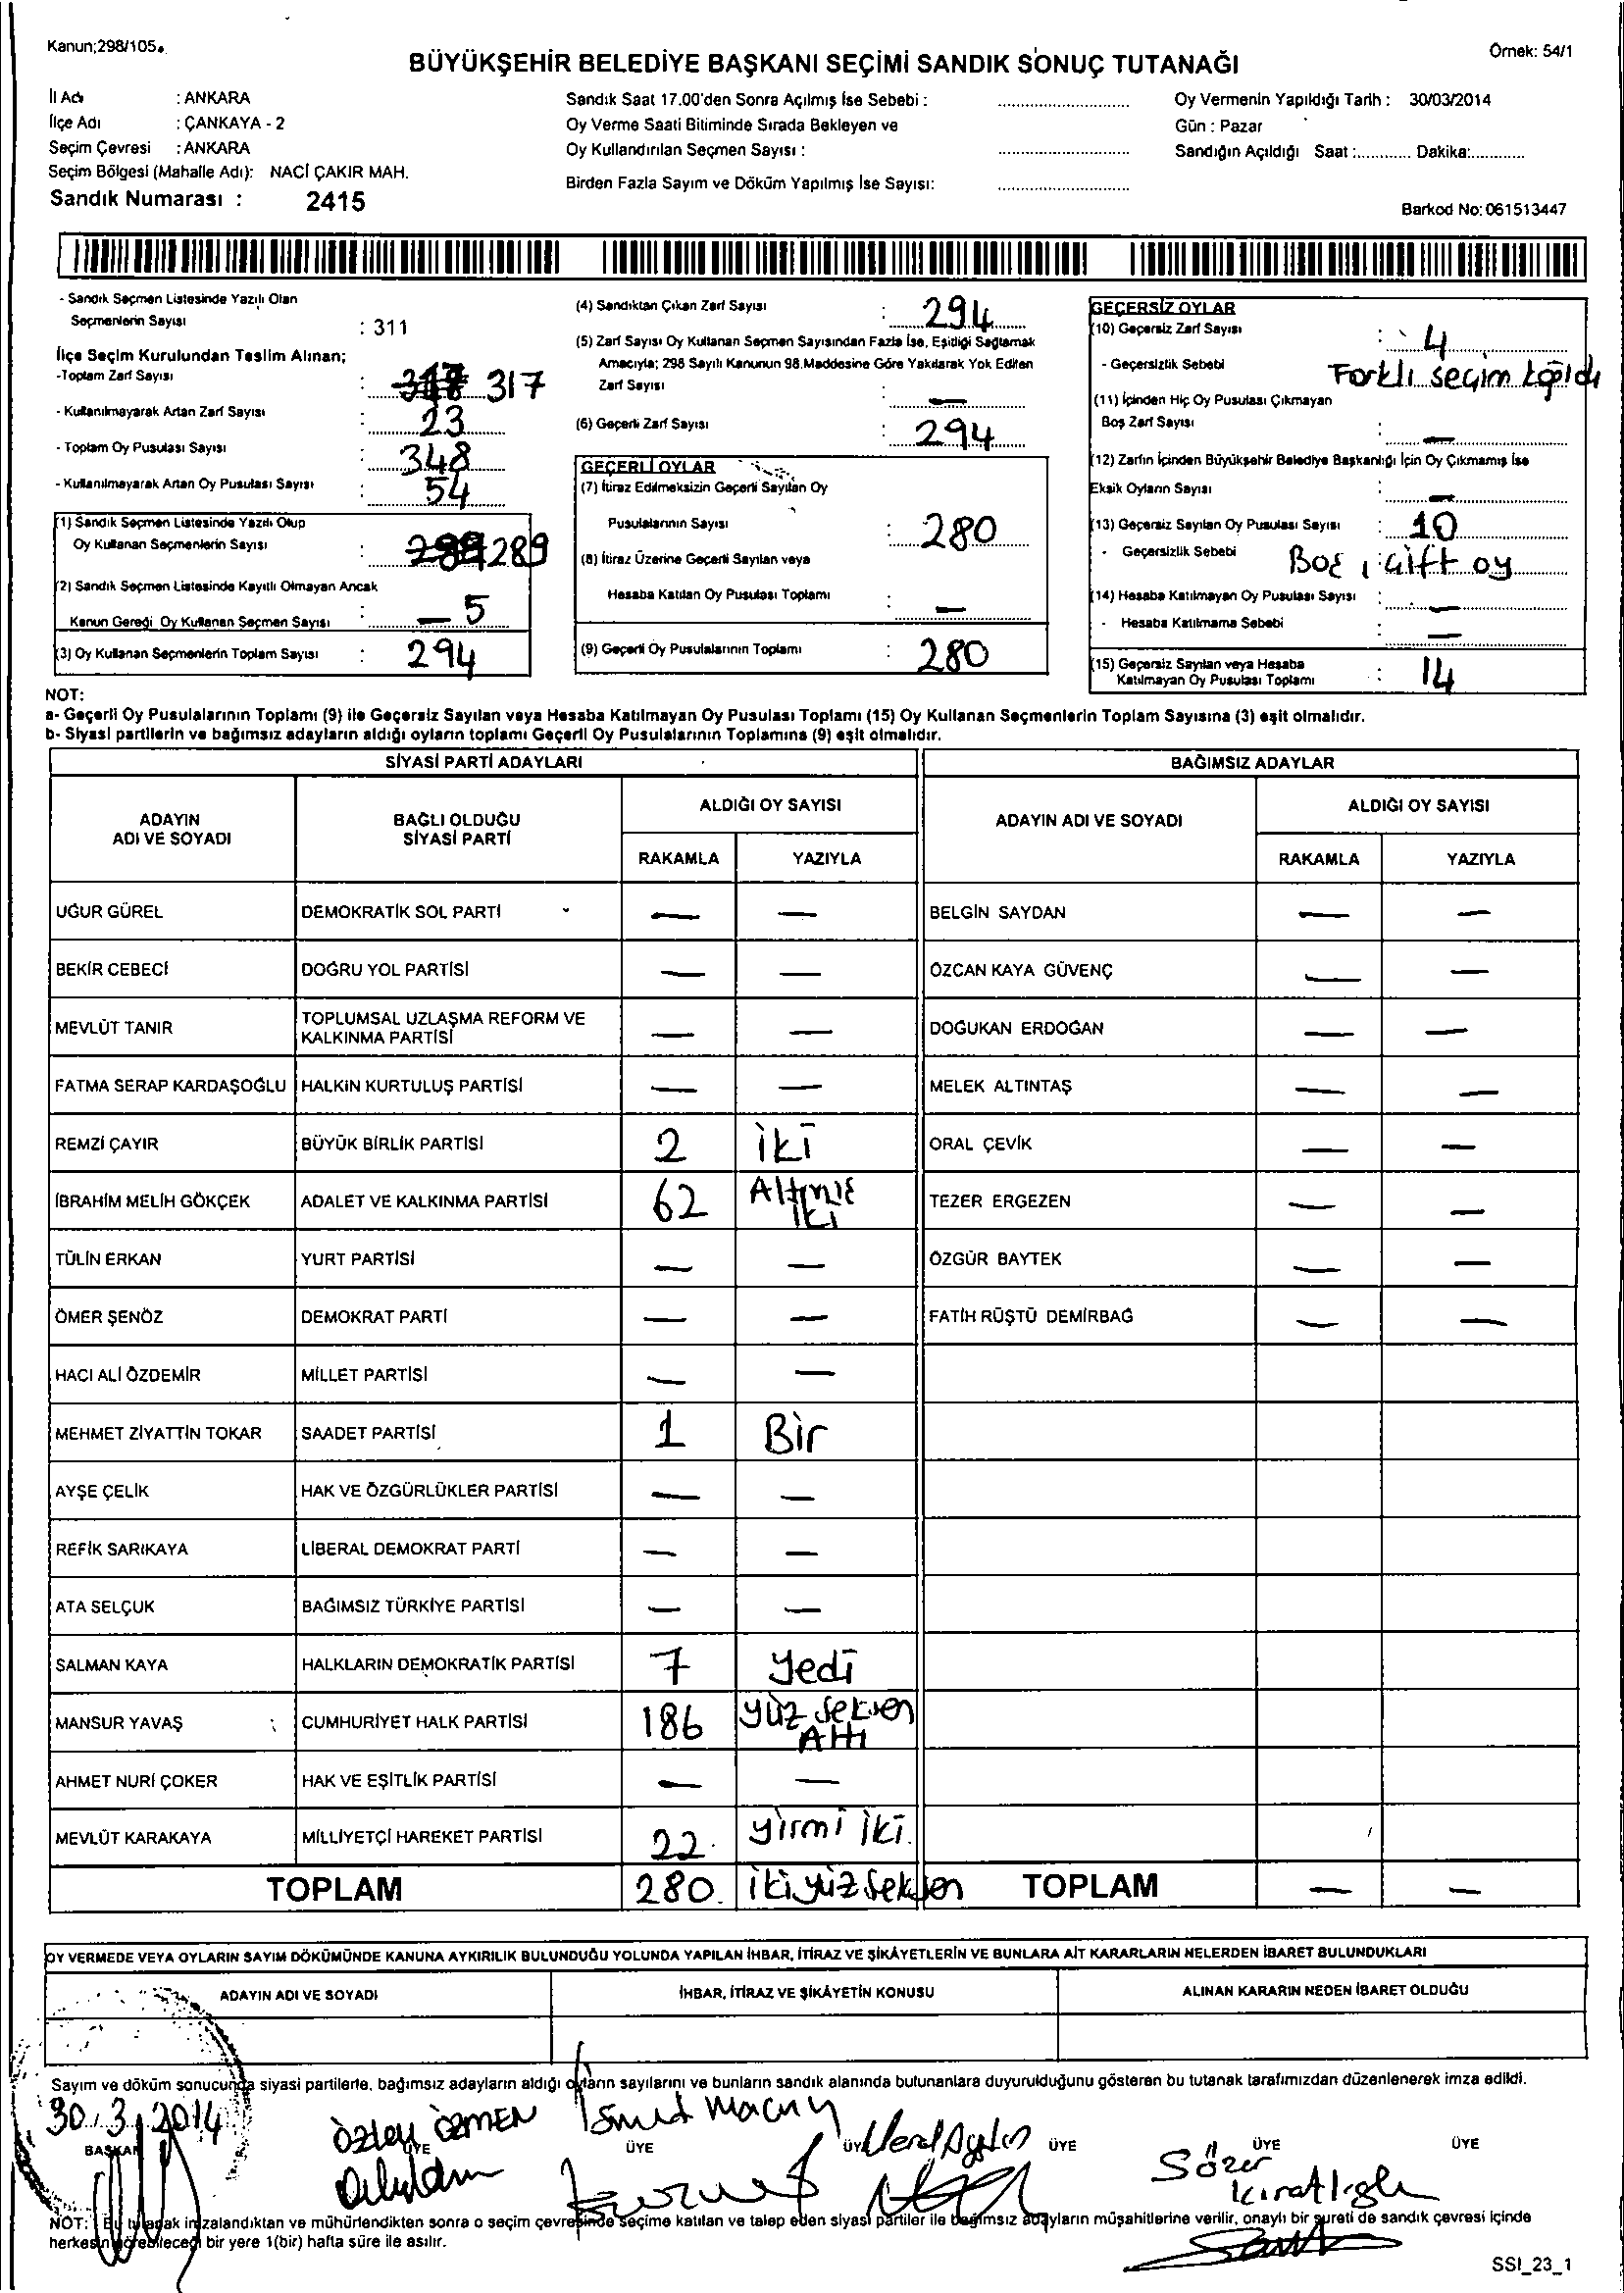 Kanun;298/105.
BÜYÜKŞEHİR BELEDİYE BAŞKANI SEÇİMİ SANDIK SONUÇ TUTANAĞI
Örnek: 54/1
İl Adı : ANKARA
İlçe Adı : ÇANKAYA - 2
Seçim Çevresi : ANKARA
Seçim Bölgesi (Mahalle Adı): NACİ ÇAKIR MAH.
Sandık Numarası : 2415
Sandık Saat 17.00'den Sonra Açılmış İse Sebebi :
Oy Verme Saati Bitiminde Sırada Bekleyen ve
Oy Kullandırılan Seçmen Sayısı :
Birden Fazla Sayım ve Döküm Yapılmış İse Sayısı:
Oy Vermenin Yapıldığı Tarih : 30/03/2014
Gün : Pazar
Sandığın Açıldığı Saat :............ Dakika:............
Barkod No: 061513447
- Sandık Seçmen Listesinde Yazılı Olan
Seçmenlerin Sayısı : 311
İlçe Seçim Kurulundan Teslim Alınan;
-Toplam Zarf Sayısı : 317
- Kullanılmayarak Artan Zarf Sayısı : 23
- Toplam Oy Pusulası Sayısı : 348
- Kullanılmayarak Artan Oy Pusulası Sayısı : 54
(1) Sandık Seçmen Listesinde Yazılı Olup
Oy Kullanan Seçmenlerin Sayısı : 289
(2) Sandık Seçmen Listesinde Kayıtlı Olmayan Ancak
Kanun Gereği Oy Kullanan Seçmen Sayısı : — 5
(3) Oy Kullanan Seçmenlerin Toplam Sayısı : 294
(4) Sandıktan Çıkan Zarf Sayısı : 294
(5) Zarf Sayısı Oy Kullanan Seçmen Sayısından Fazla İse, Eşitliği Sağlamak
Amacıyla; 298 Sayılı Kanunun 98.Maddesine Göre Yakılarak Yok Edilen
Zarf Sayısı : —
(6) Geçerli Zarf Sayısı : 294
GEÇERLİ OYLAR
(7) İtiraz Edilmeksizin Geçerli Sayılan Oy
Pusulalarının Sayısı : 280
(8) İtiraz Üzerine Geçerli Sayılan veya
Hesaba Katılan Oy Pusulası Toplamı : —
(9) Geçerli Oy Pusulalarının Toplamı : 280
GEÇERSİZ OYLAR
(10) Geçersiz Zarf Sayısı : 4
- Geçersizlik Sebebi Farklı seçim kağıdı
(11) İçinden Hiç Oy Pusulası Çıkmayan
Boş Zarf Sayısı : —
(12) Zarfın İçinden Büyükşehir Belediye Başkanlığı İçin Oy Çıkmamış İse
Eksik Oyların Sayısı : —
(13) Geçersiz Sayılan Oy Pusulası Sayısı : 10
- Geçersizlik Sebebi Boş, çift oy
(14) Hesaba Katılmayan Oy Pusulası Sayısı : —
- Hesaba Katılmama Sebebi : —
(15) Geçersiz Sayılan veya Hesaba
Katılmayan Oy Pusulası Toplamı : 14
NOT:
a- Geçerli Oy Pusulalarının Toplamı (9) ile Geçersiz Sayılan veya Hesaba Katılmayan Oy Pusulası Toplamı (15) Oy Kullanan Seçmenlerin Toplam Sayısına (3) eşit olmalıdır.
b- Siyasi partilerin ve bağımsız adayların aldığı oyların toplamı Geçerli Oy Pusulalarının Toplamına (9) eşit olmalıdır.
SİYASİ PARTİ ADAYLARI BAĞIMSIZ ADAYLAR
ADAYIN ADI VE SOYADI BAĞLI OLDUĞU SİYASİ PARTİ ALDIĞI OY SAYISI ADAYIN ADI VE SOYADI ALDIĞI OY SAYISI
RAKAMLA YAZIYLA RAKAMLA YAZIYLA
UĞUR GÜREL DEMOKRATİK SOL PARTİ — — BELGİN SAYDAN — —
BEKİR CEBECİ DOĞRU YOL PARTİSİ — — ÖZCAN KAYA GÜVENÇ — —
MEVLÜT TANIR TOPLUMSAL UZLAŞMA REFORM VE KALKINMA PARTİSİ — — DOĞUKAN ERDOĞAN — —
FATMA SERAP KARDAŞOĞLU HALKIN KURTULUŞ PARTİSİ — — MELEK ALTINTAŞ — —
REMZİ ÇAYIR BÜYÜK BİRLİK PARTİSİ 2 iki ORAL ÇEVİK — —
İBRAHİM MELİH GÖKÇEK ADALET VE KALKINMA PARTİSİ 62 Altmış iki TEZER ERGEZEN — —
TÜLİN ERKAN YURT PARTİSİ — — ÖZGÜR BAYTEK — —
ÖMER ŞENÖZ DEMOKRAT PARTİ — — FATİH RÜŞTÜ DEMİRBAĞ — —
HACI ALİ ÖZDEMİR MİLLET PARTİSİ — —
MEHMET ZİYATTİN TOKAR SAADET PARTİSİ 1 Bir
AYŞE ÇELİK HAK VE ÖZGÜRLÜKLER PARTİSİ — —
REFİK SARIKAYA LİBERAL DEMOKRAT PARTİ — —
ATA SELÇUK BAĞIMSIZ TÜRKİYE PARTİSİ — —
SALMAN KAYA HALKLARIN DEMOKRATİK PARTİSİ 7 yedi
MANSUR YAVAŞ CUMHURİYET HALK PARTİSİ 186 yüz seksen Altı
AHMET NURİ ÇOKER HAK VE EŞİTLİK PARTİSİ — —
MEVLÜT KARAKAYA MİLLİYETÇİ HAREKET PARTİSİ 22 yirmi iki.
TOPLAM 280 ikiyüzseksen TOPLAM — —
OY VERMEDE VEYA OYLARIN SAYIM DÖKÜMÜNDE KANUNA AYKIRILIK BULUNDUĞU YOLUNDA YAPILAN İHBAR, İTİRAZ VE ŞİKÂYETLERİN VE BUNLARA AİT KARARLARIN NELERDEN İBARET BULUNDUKLARI
ADAYIN ADI VE SOYADI İHBAR, İTİRAZ VE ŞİKÂYETİN KONUSU ALINAN KARARIN NEDEN İBARET OLDUĞU
Sayım ve döküm sonucunda siyasi partilerle, bağımsız adayların aldığı oyların sayılarını ve bunların sandık alanında bulunanlara duyurulduğunu gösteren bu tutanak tarafımızdan düzenlenerek imza edildi.
30.3.2014
ÖZMEN
BAŞKAN ÜYE ÜYE ÜYE ÜYE ÜYE ÜYE
Sözer
NOT: Bu tutanak imzalandıktan ve mühürlendikten sonra o seçim çevresinde seçime katılan ve talep eden siyasi partiler ile bağımsız adayların müşahitlerine verilir, onaylı bir sureti de sandık çevresi içinde
herkesin görebileceği bir yere 1(bir) hafta süre ile asılır.
SSI_23_1